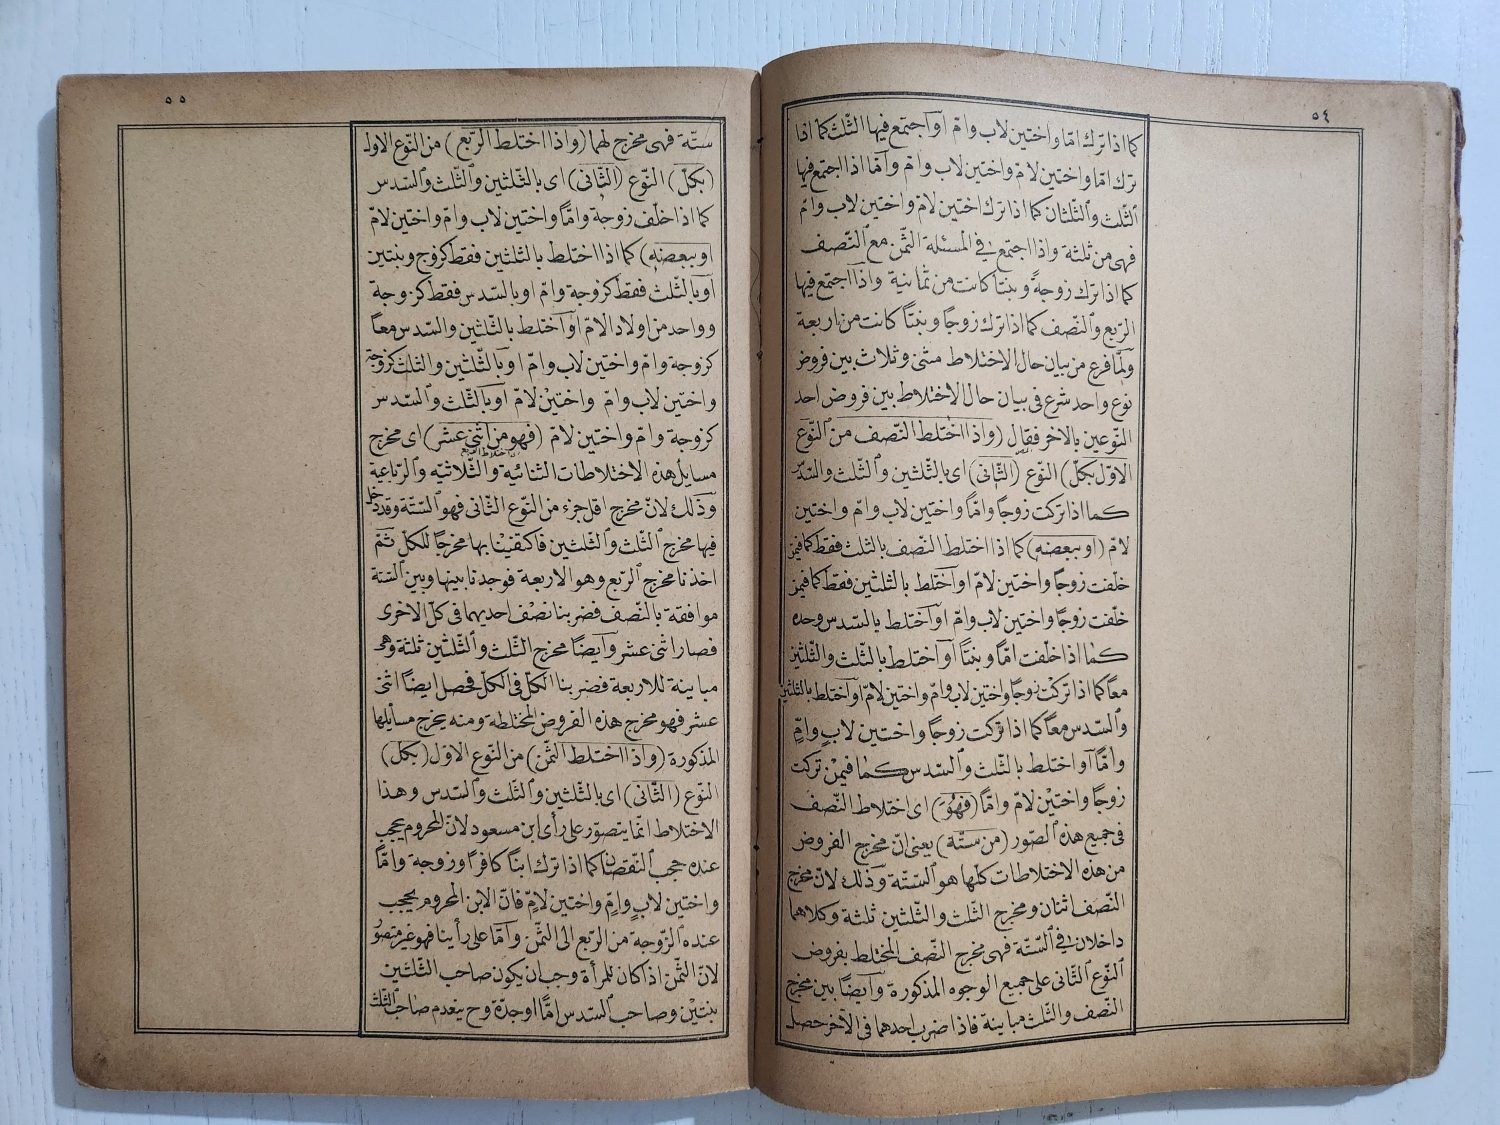 ٥٤
كما اذا ترك امّا واختين لاب وامّ او اجتمع فيها الثّلث كما اذا
ترك امّا واختين لامّ واختين لاب وامّ وأمّا اذا اجتمع فيها
الثّلث والثّلثان كما اذا ترك اختين لامّ واختين لاب وامّ
فهى من ثلثة واذا اجتمع فى المسئلة الثّمن مع النّصف
كما اذا ترك زوجةً وبنتا كانت من ثمانية واذا اجتمع فيها
الرّبع والنّصف كما اذا ترك زوجًا وبنتًا كانت من اربعة
ولمّا فرغ من بيان حال الاختلاط مثنى وثلاث بين فروض
نوع واحد شرع فى بيان حال الاختلاط بين فروض احد
النّوعين بالاخر فقال (واذا اختلط النّصف من النّوع
الاوّل بكلّ) النّوع (الثّانى) اى بالثّلثين والثّلث والسّدس
كما اذا تركت زوجًا وامًّا واختين لاب وامّ واختين
لامّ (او ببعضه) كما اذا اختلط النّصف بالثلث فقط كما فيمن
خلّفت زوجًا واختين لامّ او اختلط بالثلثين فقط كما فيمن
خلّفت زوجًا واختين لاب وامّ او اختلط بالسّدس وحده
كما اذا خلّفت امًّا وبنتًا او اختلط بالثّلث والثّلثين
معاً كما اذا تركت زوجًا واختين لاب وامّ واختين لامّ او اختلط بالثلثين
والسّدس معاً كما اذا تركت زوجًا واختين لابٍ وامّ
وامًّا او اختلط بالثّلث والسّدس كما فيمن تركت
زوجًا واختين لامّ وامًّا (فهو) اى اختلاط النّصف
فى جميع هذه الصّور (من ستّة) يعنى انّ مخرج الفروض
من هذه الاختلاطات كلّها هو السّتّة وذلك لانّ مخرج
النّصف اثنان ومخرج الثّلث والثّلثين ثلثة وكلاهما
داخلان فى السّتّة فهى مخرج النّصف المختلط بفروض
النّوع الثّانى على جميع الوجوه المذكورة وأيضًا بين مخرج
النّصف والثّلث مباينة فاذا ضرب احدهما فى الآخر حصل
٥٥
ستّة فهى مخرج لهما (واذا اختلط الرّبع) من النّوع الاول
(بكلّ) النّوع (الثّانى) اى بالثّلثين والثّلث والسّدس
كما اذا خلّف زوجة وامًّا واختين لاب وامّ واختين لامّ
(او ببعضه) كما اذا اختلط بالثّلثين فقط كزوج وبنتين
او بالثّلث فقط كزوجة وامّ او بالسّدس فقط كزوجة
وواحد من اولاد الامّ او اختلط بالثّلثين والسّدس معاً
كزوجة وامّ واختين لاب وامّ او بالثّلثين والثلث كزوجة
واختين لاب وامّ واختين لامّ او بالثّلث والسّدس
كزوجة وامّ واختين لامّ (فهو من اثنى عشر) اى مخرج
مسايل هذه الاختلاطات الثنائية والثّلاثيّه والرّباعية
وذلك لانّ مخرج اقل جزء من النّوع الثّانى فهو السّتّة وقد دخل
فيها مخرج الثّلث والثّلثين فاكتفينا بها مخرجًا للكلّ ثمّ
اخذنا مخرج الرّبع وهو الاربعة فوجدنا بينها وبين السّتة
موافقة بالنّصف فضربنا نصف احديهما فى كلّ الاخرى
فصار اثنى عشر وأيضًا مخرج الثّلث والثّلثين ثلثة وهى
مباينة للاربعة فضربنا الكلّ فى الكلّ فحصل ايضًا اثنى
عشر فهو مخرج هذه الفروض المختلطة ومنه يخرج مسايلها
المذكورة (واذا اختلط الثّمن) من النّوع الاوّل (بكلّ)
النّوع (الثّانى) اى بالثّلثين والثّلث والسّدس وهذا
الاختلاط انّما يتصوّر على رأى ابن مسعود لانّ المحروم يحجب
عنده حجب النّقصان كما اذا ترك ابنًا كافرًا وزوجة وامًّا
واختين لابٍ وامّ واختين لامّ فانّ الابن المحروم يحجب
عنده الزّوجة من الرّبع الى الثّمن وأمّا على رأينا فهو غير متصوّر
لانّ الثّمن اذا كان للمرأة وجب ان يكون صاحب الثّلثين
بنتين وصاحب السّدس امًّا او جدّة وح ينعدم صاحب الثّلث